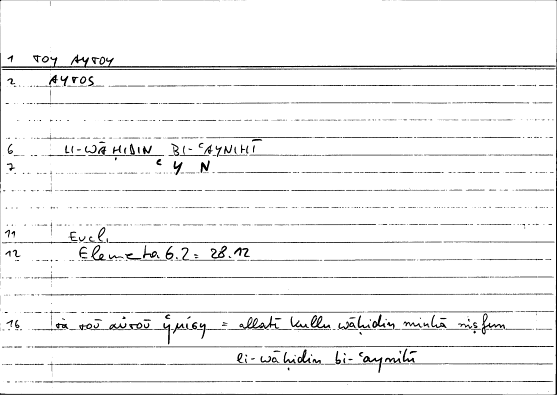 1 ΤΟΥ ΑΥΤΟΥ
2 ΑΥΤΟS
6 LI-WĀḤIDIN BI-ʿAYNIHĪ
7 ʿ Y N
11 Eucl.
12 Elementa 6.2 = 28.12
16 τὰ τοῦ αὐτοῦ ἡμίση = allatī kullu wāḥidin minhā niṣfun
li-wāḥidin bi-ʿaynihī